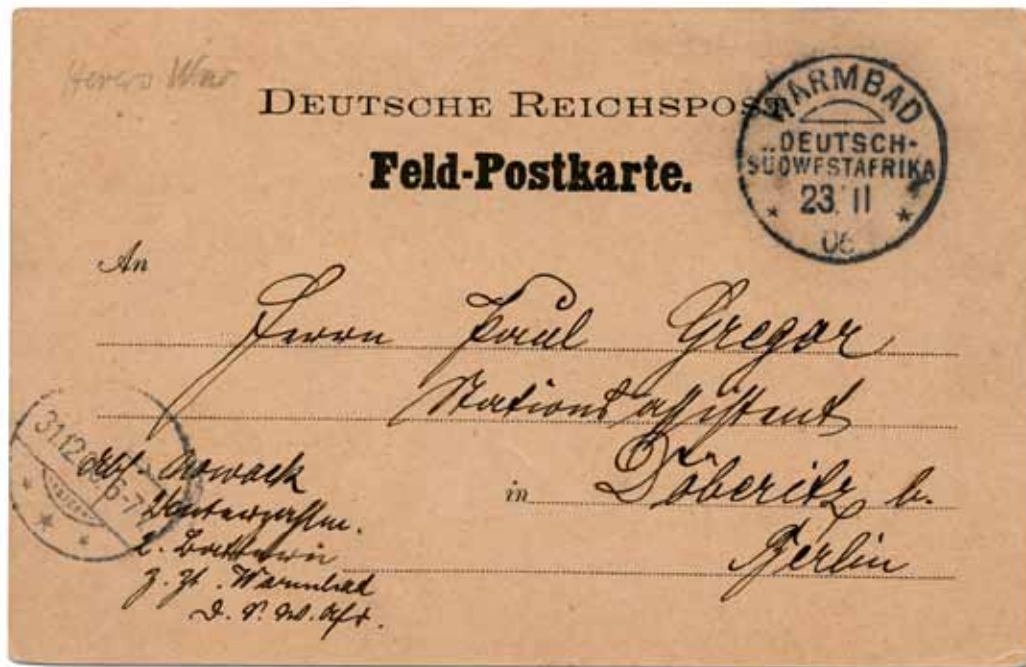 Herero War
DEUTSCHE REICHSPOST
Feld-Postkarte.
WARMBAD
DEUTSCH-
SÜDWESTAFRIKA
23. 11
06
An
Herrn Paul Gregor
Stationsassistent
in Döberitz b.
Berlin
31.12.06 6-7
Nowack
Unterzahlm.
2. Batterie
z. Zt. Warmbad
D. S. W. Afr.